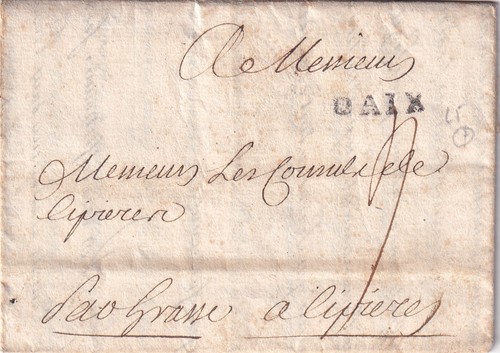 A Messieurs
DAIX
Messieurs Les Consuls de
Cipieres
Par Grasse a Cipieres